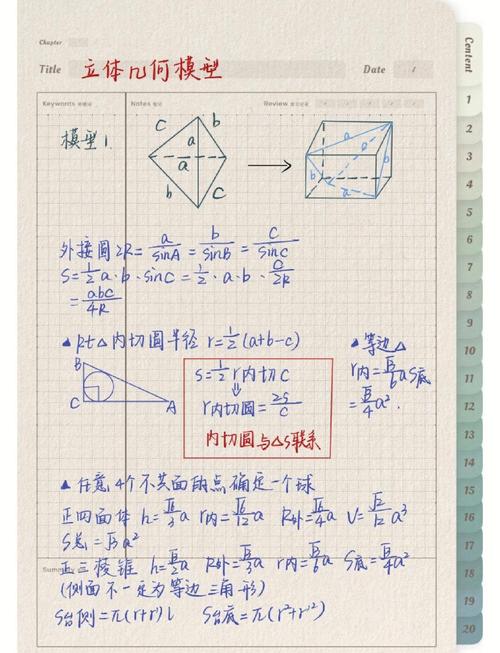 Chapter
Title 立体几何模型 Date /
Content
Keywords Notes Review
模型1
c b
a
a
b c
a
b b
a
外接圆2R=a/sinA=b/sinB=c/sinC
S=1/2a·b·sinC=1/2·a·b·c/2R
=abc/4R
▲Rt△内切圆半径 r=1/2(a+b-c)
B
C A
S=1/2r内切C
⇓
r内切圆=2S/C
内切圆与△S联系
▲等边△
r内=√3/6a S底
=√3/4a².
▲任意4个不共面的点确定一个球
正四面体 h=√6/3a r内=√6/12a R外=√6/4a V=√2/12a³
S总=√3a²
Summary
正三棱锥 h=√3/2a R外=√3/3a r内=√3/6a S底=√3/4a²
(侧面不一定为等边三角形)
S台侧=π(r+r')l S台底=π(r²+r'²)
1
2
3
4
5
6
7
8
9
10
11
12
13
14
15
16
17
18
19
20